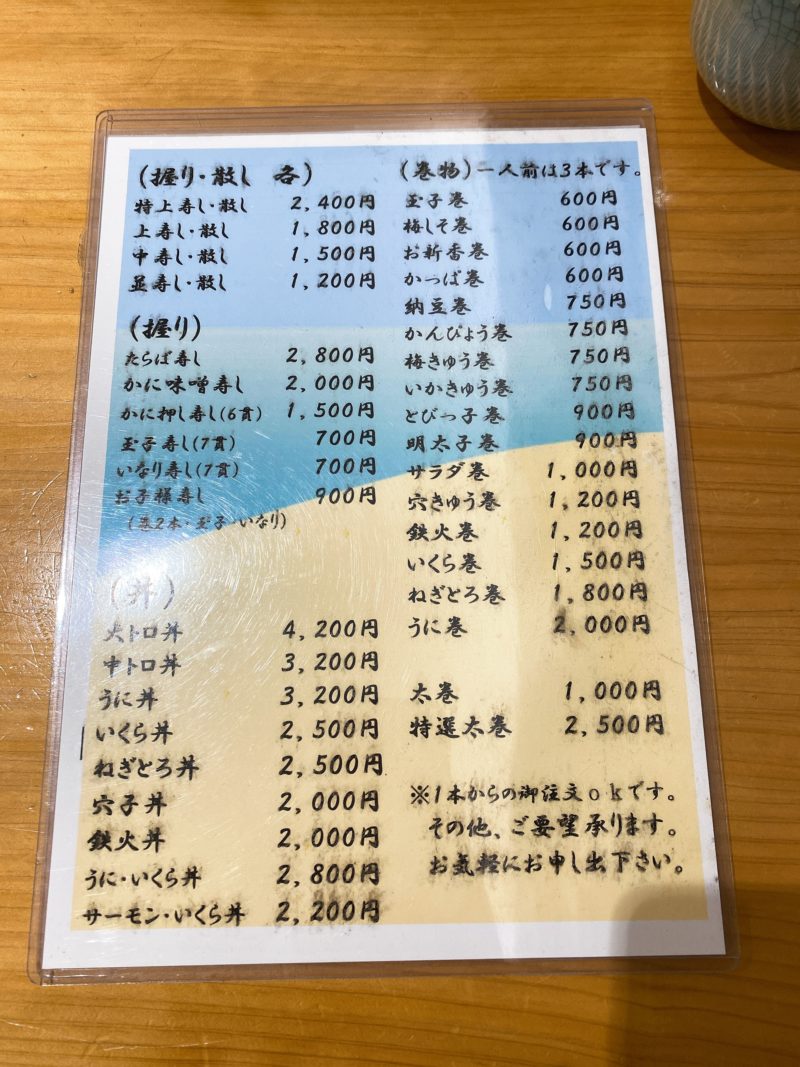 (握り・散し 各)
特上寿し・散し 2,400円
上寿し・散し 1,800円
中寿し・散し 1,500円
並寿し・散し 1,200円
(握り)
たらば寿し 2,800円
かに味噌寿し 2,000円
かに押し寿し(6貫) 1,500円
玉子寿し(7貫) 700円
いなり寿し(7貫) 700円
お子様寿し 900円
(巻2本・玉子・いなり)
(丼)
大トロ丼 4,200円
中トロ丼 3,200円
うに丼 3,200円
いくら丼 2,500円
ねぎとろ丼 2,500円
穴子丼 2,000円
鉄火丼 2,000円
うに・いくら丼 2,800円
サーモン・いくら丼 2,200円
(巻物)一人前は3本です。
玉子巻 600円
梅しそ巻 600円
お新香巻 600円
かっぱ巻 600円
納豆巻 750円
かんぴょう巻 750円
梅きゅう巻 750円
いかきゅう巻 750円
とびっ子巻 900円
明太子巻 900円
サラダ巻 1,000円
穴きゅう巻 1,200円
鉄火巻 1,200円
いくら巻 1,500円
ねぎとろ巻 1,800円
うに巻 2,000円
太巻 1,000円
特選太巻 2,500円
※1本からの御注文okです。
その他、ご要望承ります。
お気軽にお申し出下さい。